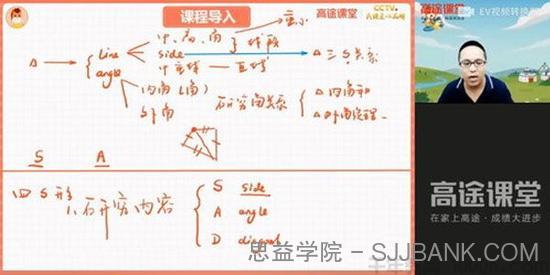 课程导入
高途课堂
CCTV
EV视频转换
高途课堂
重心
中、高、角 } 线段
line
side
△三S关系
△ → { angle
中垂线 — 直线
内角(角)
外角
研究角关系 { △内角和
△外角定理
S A
四S形
1、研究内容 { S side
A angle
D
高途课堂
在家上高途·成绩大进步
思益学院 - SJJBANK.COM